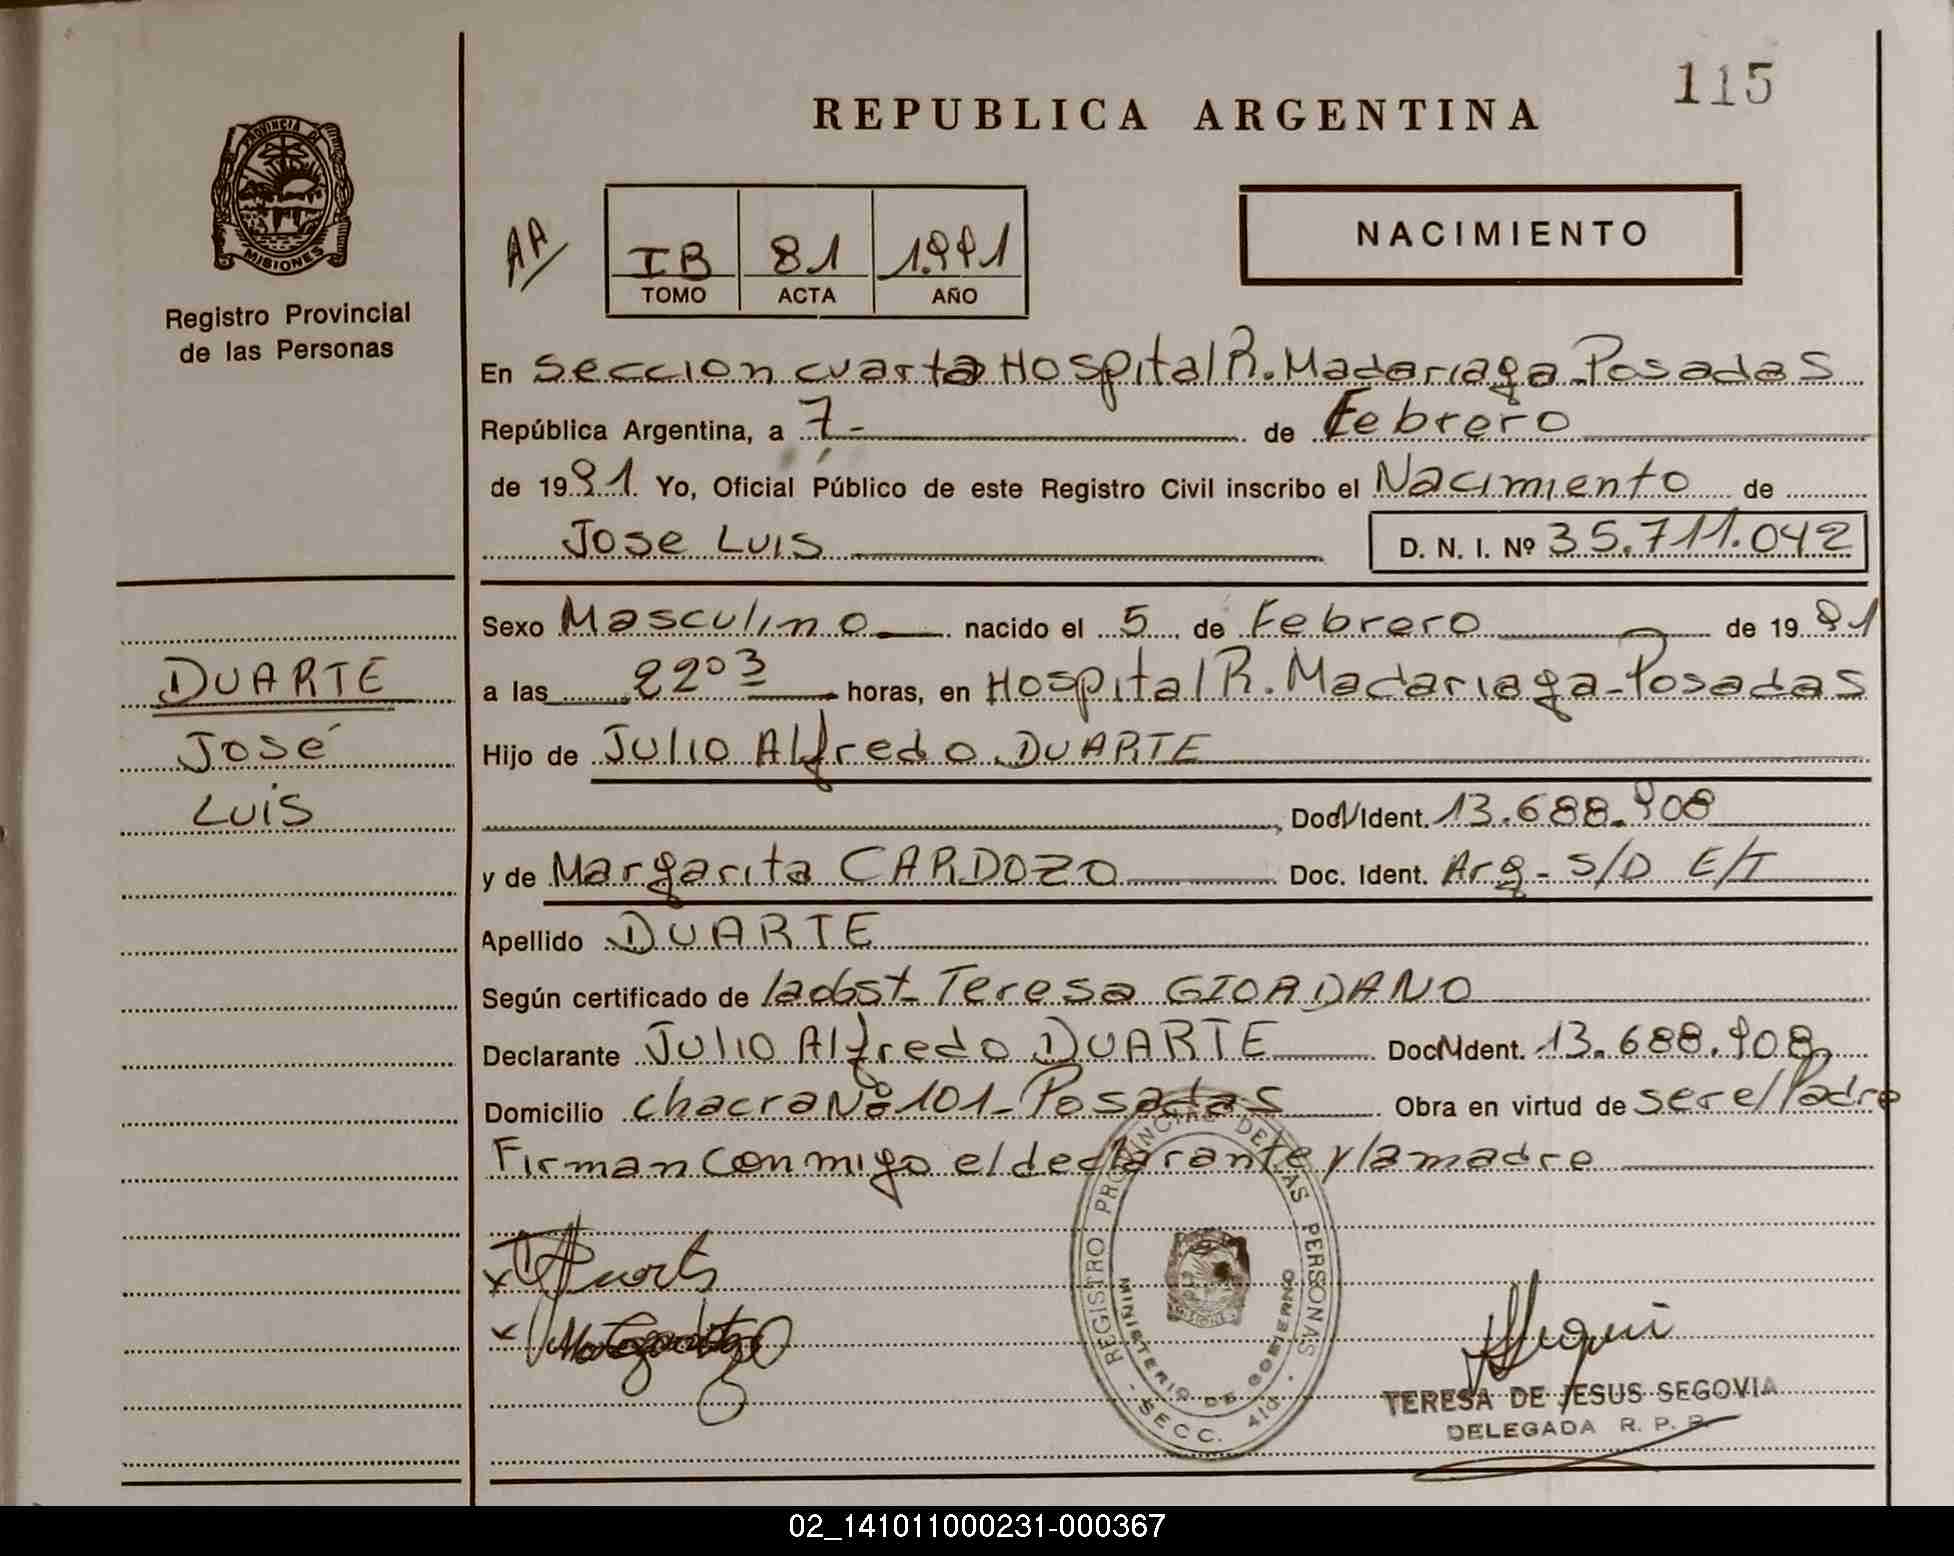 115
REPUBLICA ARGENTINA
PROVINCIA DE
MISIONES
Registro Provincial
de las Personas
AA
IB 81 1.991
TOMO ACTA AÑO
NACIMIENTO
En Seccion cuarta Hospital R. Madariaga - Posadas
República Argentina, a 7 - de Febrero
de 1991. Yo, Oficial Público de este Registro Civil inscribo el Nacimiento de
Jose Luis D. N. I. Nº 35.711.042
Sexo Masculino nacido el 5 de Febrero de 1991
a las 22º3 horas, en Hospital R. Madariaga - Posadas
Hijo de Julio Alfredo DUARTE
Doc. N Ident. 13.688.908
y de Margarita CARDOZO Doc. Ident. Arg - S/D E/T
Apellido DUARTE
Según certificado de la obst. Teresa GIORDANO
Declarante Julio Alfredo DUARTE Doc. N Ident. 13.688.908
Domicilio chacra Nº 101 - Posadas Obra en virtud de ser el Padre
Firman conmigo el declarante y la madre
DUARTE
José
Luis
REGISTRO PROVINCIAL DE LAS PERSONAS
MINISTERIO DE GOBIERNO
SECC. 4ta.
TERESA DE JESUS SEGOVIA
DELEGADA R. P. P.
02_141011000231-000367